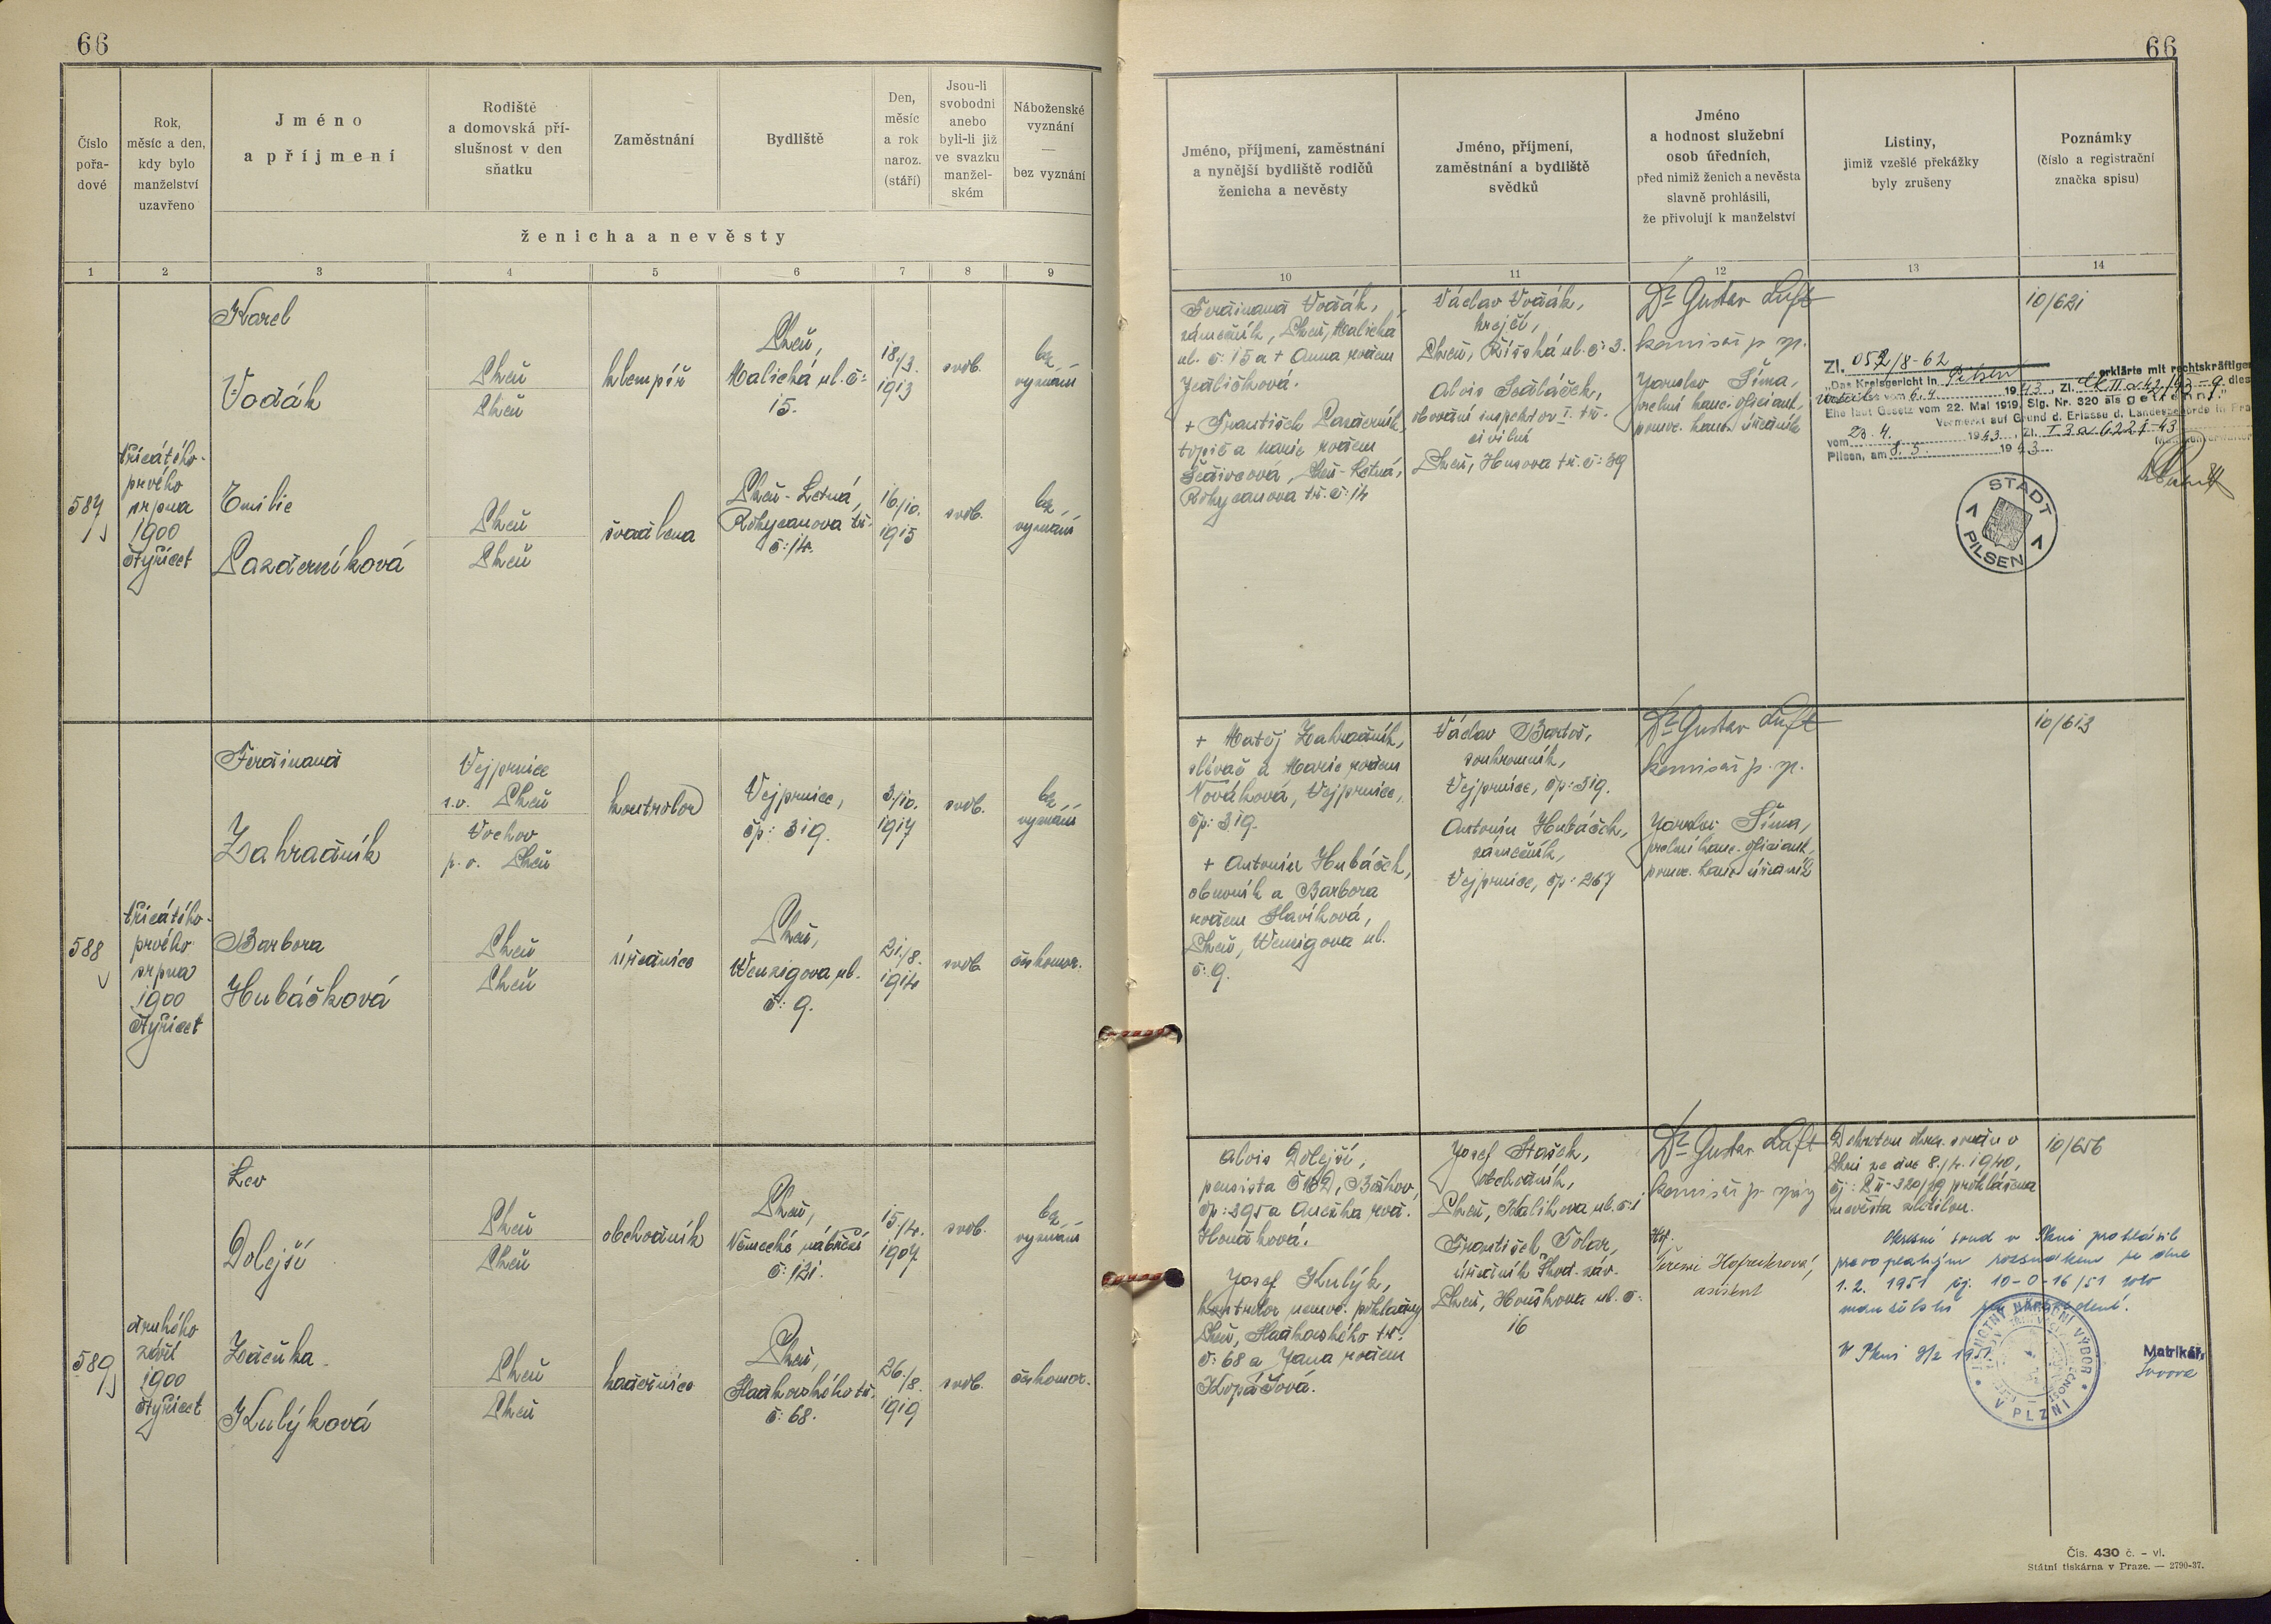 66
66
Číslo
pořa-
dové
Rok,
měsíc a den,
kdy bylo
manželství
uzavřeno
Jméno
a příjmení
Rodiště
a domovská pří-
slušnost v den
sňatku
Zaměstnání
Bydliště
Den,
měsíc
a rok
naroz.
(stáří)
Jsou-li
svobodni
anebo
byli-li již
ve svazku
manžel-
ském
Náboženské
vyznání
—
bez vyznání
ženicha a nevěsty
Jméno, příjmení, zaměstnání
a nynější bydliště rodičů
ženicha a nevěsty
Jméno, příjmení,
zaměstnání a bydliště
svědků
Jméno
a hodnost služební
osob úředních,
před nimiž ženich a nevěsta
slavně prohlásili,
že přivolují k manželství
Listiny,
jimiž vzešlé překážky
byly zrušeny
Poznámky
(číslo a registrační
značka spisu)
1 2 3 4 5 6 7 8 9
10 11 12 13 14
587
třicátého-
prvého
srpna
1900
čtyřicet
Karel
Vodák
Plzeň
Plzeň
klempíř
Plzeň,
Malická ul. č:
15.
18./3.
1913
svob.
bez
vyznání
Emilie
Pazderníková
Plzeň
Plzeň
švadlena
Plzeň-Letná,
Rokycanova tř.
č: 14.
16/10.
1915
svob.
bez
vyznání
Ferdinand Vodák,
zámečník, Plzeň, Malická
ul. č: 15 a + Anna rozem
Jedličková.
+ František Pazderník,
topič a Marie rozem
Plzeň-Letná,
Rokycanova tř. č: 14
Václav Vodák,
krejčí,
Plzeň, Říšská ul. č: 3.
Alois Sedláček,
inspektor I. tř.
civilní
Plzeň, Husova tř. č: 39
Dr Gustav Luft
komisař p. sp.
Jaroslav Šíma,
kanc. oficiant,
pomoc. kanc. úředník
10/621
Zl. 052/8-62
„Das Kreisgericht in Pilsen erklärte mit rechtskräftigem
vom 6.4. 1943, Zl. Ck II a 42/43-9 diese
Ehe laut Gesetz vom 22. Mai 1919, Slg. Nr. 320 als getrennt."
Vermerkt auf Grund d. Erlasse d. Landesbehörde in Pra
vom 23.4. 1943, Zl. I 3 a 6221-43
Pilsen, am 8.5. 1943
STADT
PILSEN
588
třicátého-
prvého
srpna
1900
čtyřicet
Ferdinand
Zahradník
Vejprnice
s.o. Plzeň
Vochov
p.o. Plzeň
kontrolor
Vejprnice,
čp: 319.
3./10.
1917
svob.
bez
vyznání
Barbora
Hubáčková
Plzeň
Plzeň
úřednice
Plzeň,
Wenzigova ul.
č: 9.
21./8.
1914
svob.
čskomor.
+ Matěj Zahradník,
slévač a Marie rozem
Nováková, Vejprnice,
čp: 319.
+ Antonín Hubáček,
obuvník a Barbora
rozem Slavíková,
Plzeň, Wenzigova ul.
č: 9.
Václav Bartoš,
soukromník,
Vejprnice, čp: 319.
Antonín Hubáček,
zámečník,
Vejprnice, čp: 267
Dr Gustav Luft
komisař p. sp.
Šíma,
kanc. oficiant,
pomoc. kanc. úředník
10/613
589
druhého
září
1900
čtyřicet
Lev
Dolejší
Plzeň
Plzeň
obchodník
Plzeň,
Německé nábřeží
č: 121.
15./4.
1907.
svob.
bez
vyznání
Zdeňka
Kulýková
Plzeň
Plzeň
kadeřnice
Plzeň,
Sladkovského tř.
č: 68.
26./8.
1919
svob.
čskomor.
Alois Dolejší,
pensista ČSD, Božkov,
čp: 295 a Anežka roz.
Honáková.
Josef Kulýk,
kontrolor nemoc. pokladny
Plzeň, Sladkovského tř.
č: 68 a Jana rozem
Kopáčová.
Josef Stašek,
obchodník,
Plzeň, Kalikova ul. č: 1
František Tolar,
úředník Škod. záv.
Plzeň, Houškova ul. č:
16
Dr Gustav Luft
komisař p.
asistent
Dekretem okres. soudu v
Plzni ze dne 8./4. 1940,
čj: P II-320/39 prohlášena
nevěsta zletilou.
10/656
Okresní soud v Plzni prohlásil
pravoplatným rozsudkem ze dne
1.2. 1951 čj. 10-0-16/51 toto
manželství za rozvedené.
V Plzni 9/2 1951
Matrikář:
NÁRODNÍ VÝBOR
V PLZNI
Čís. 430 č. - vl.
Státní tiskárna v Praze. — 2790-37.